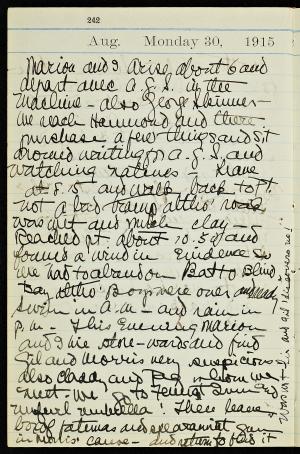 242
Aug. Monday 30, 1915
Marion and I arise about 6 and
depart avec a.G.S. in the
machine - also George Skinner -
we reach Hammond and there
purchase a few things and sit
around waiting for a.G.S. and
watching
at 8.15 and walk back to Pt.
not a bad tramp altho' road
was wet and much clay -
reached pt. about 10.50 and
found a wind in evidence so
we had to abandon Boat to Blind
Bay altho' Boys were over and
swim in a.m. - and rain in
p.m. - This evening Marion
and I we store-wards and find
Gil and Morris very suspicious
also and in whom we
meet - we go to Tennis and
unfurl umbrella! There leave a
box of fatimas and spearmint gum
in Morris' cause - and return to find it